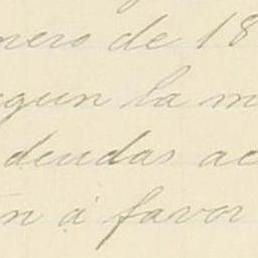 nero de 18
egun la m
deudas ac
n á favor